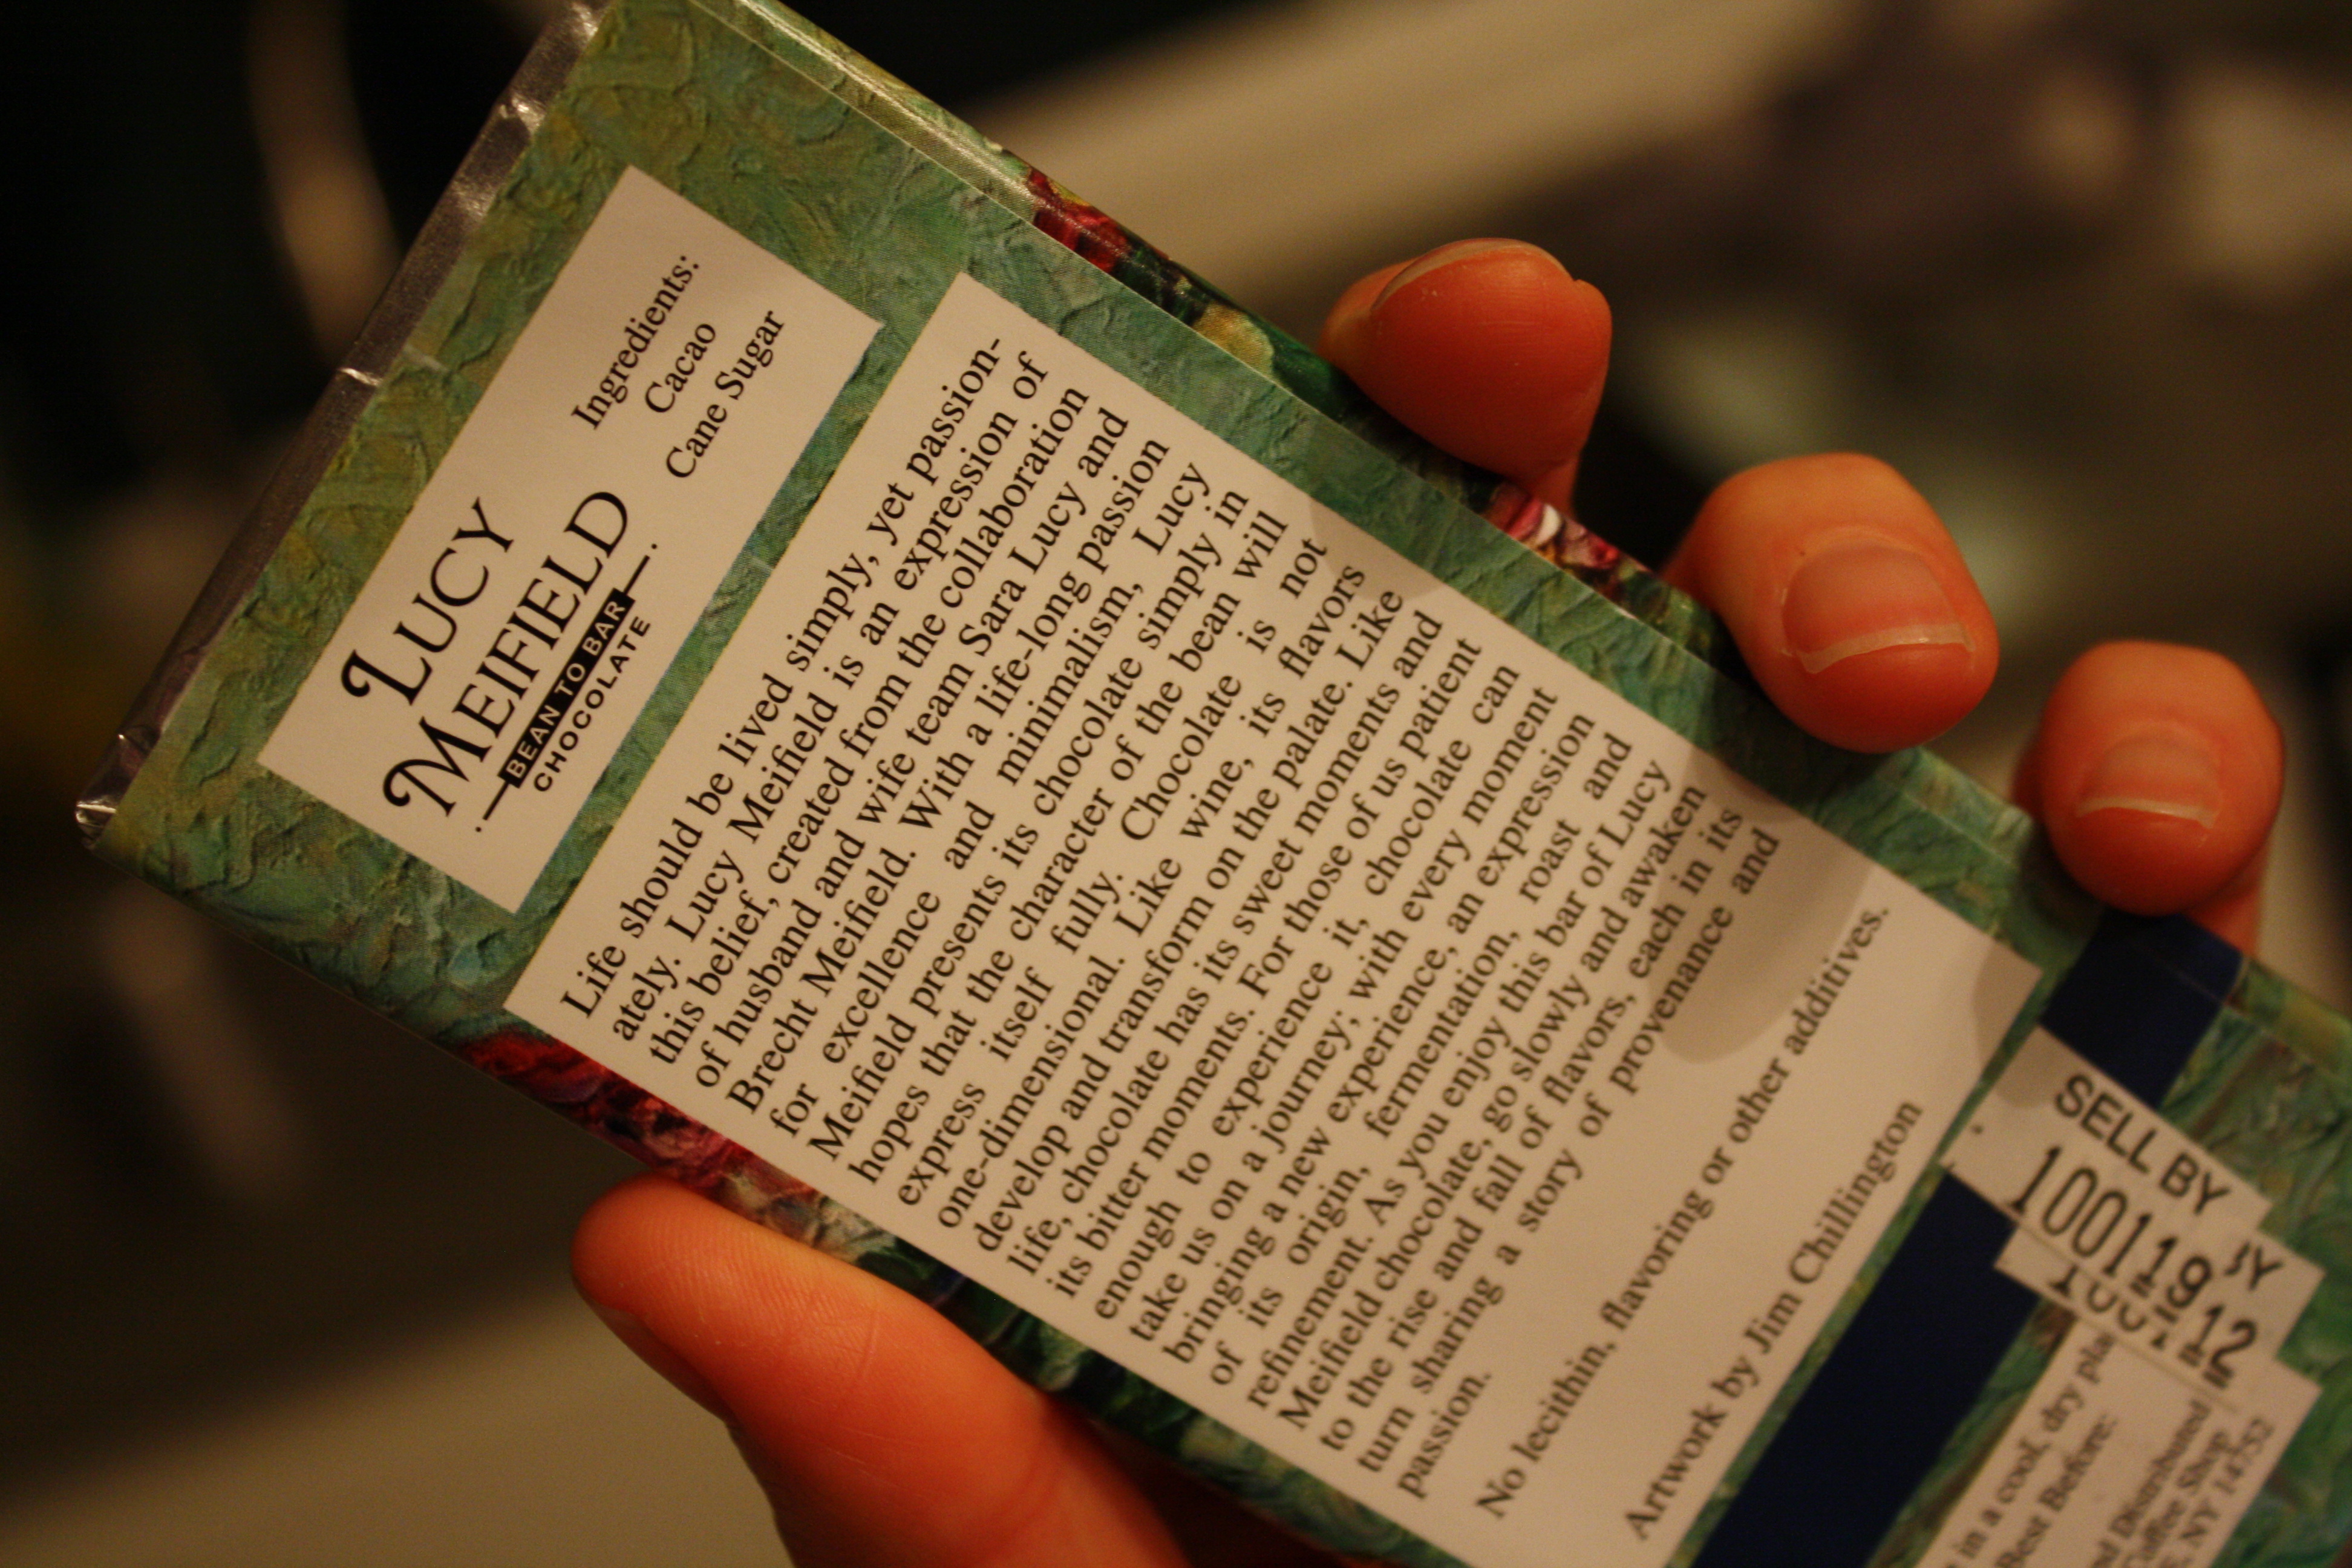 LUCY
MEIFIELD
BEAN TO BAR
CHOCOLATE
Ingredients:
Cacao
Cane Sugar
Life should be lived simply, yet passion-
ately. Lucy Meifield is an expression of
this belief, created from the collaboration
of husband and wife team Sara Lucy and
Brecht Meifield. With a life-long passion
for excellence and minimalism, Lucy
Meifield presents its chocolate simply in
hopes that the character of the bean will
express itself fully. Chocolate is not
one-dimensional. Like wine, its flavors
develop and transform on the palate. Like
life, chocolate has its sweet moments and
its bitter moments. For those of us patient
enough to experience it, chocolate can
take us on a journey; with every moment
bringing a new experience, an expression
of its origin, fermentation, roast and
refinement. As you enjoy this bar of Lucy
Meifield chocolate, go slowly and awaken
to the rise and fall of flavors, each in its
turn sharing a story of provenance and
passion.
No lecithin, flavoring or other additives.
Artwork by Jim Chillington
SELL BY
in a cool, dry
Best Before:
Distributed
Shop
NY 14752